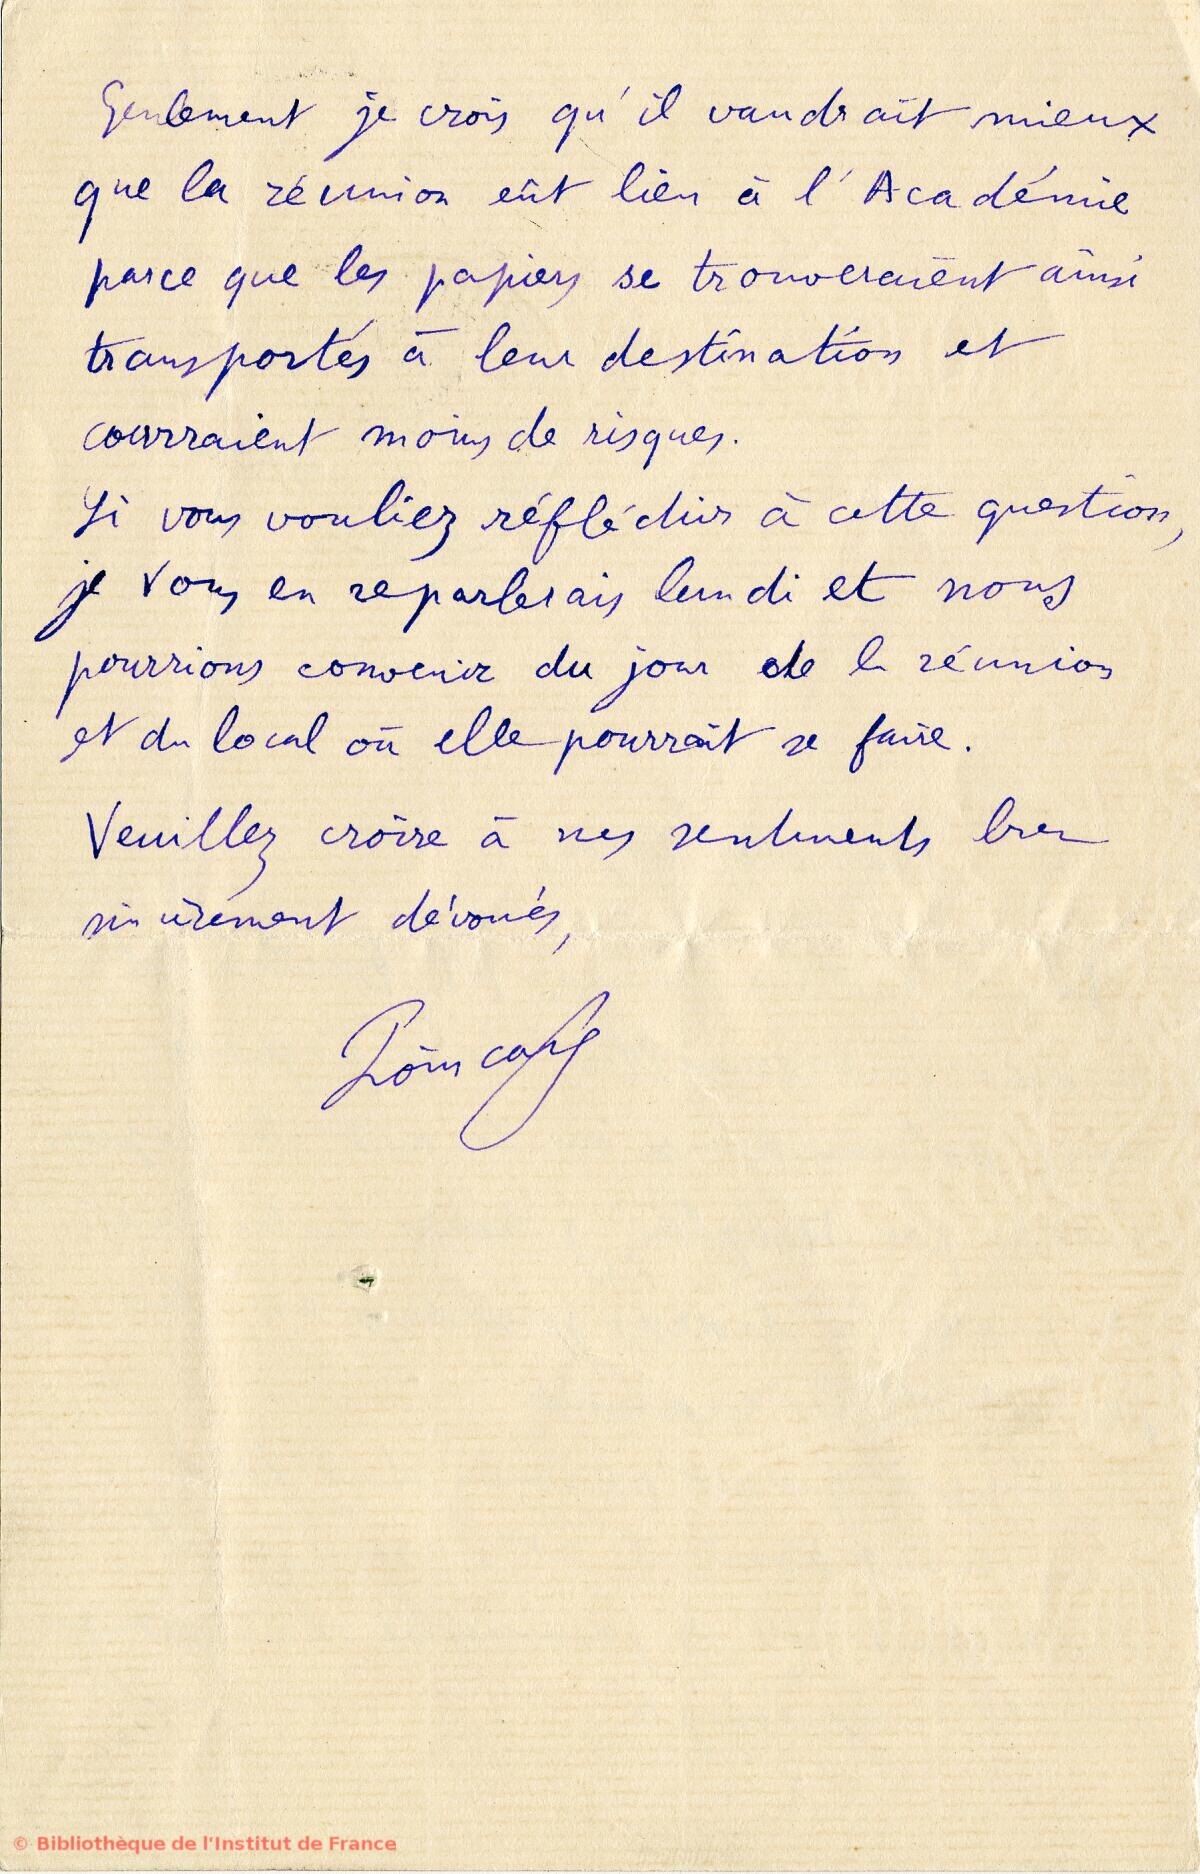 Seulement je crois qu'il vaudrait mieux
que la réunion eût lieu à l'Académie
parce que les papiers se trouveraient ainsi
transportés à leur destination et
courraient moins de risques.
Si vous vouliez réfléchir à cette question,
je vous en reparlerais lundi et nous
pourrions convenir du jour de la réunion
et du local où elle pourrait se faire.
Veuillez croire à mes sentiments bien
sincèrement dévoués,
Poincaré
© Bibliothèque de l'Institut de France